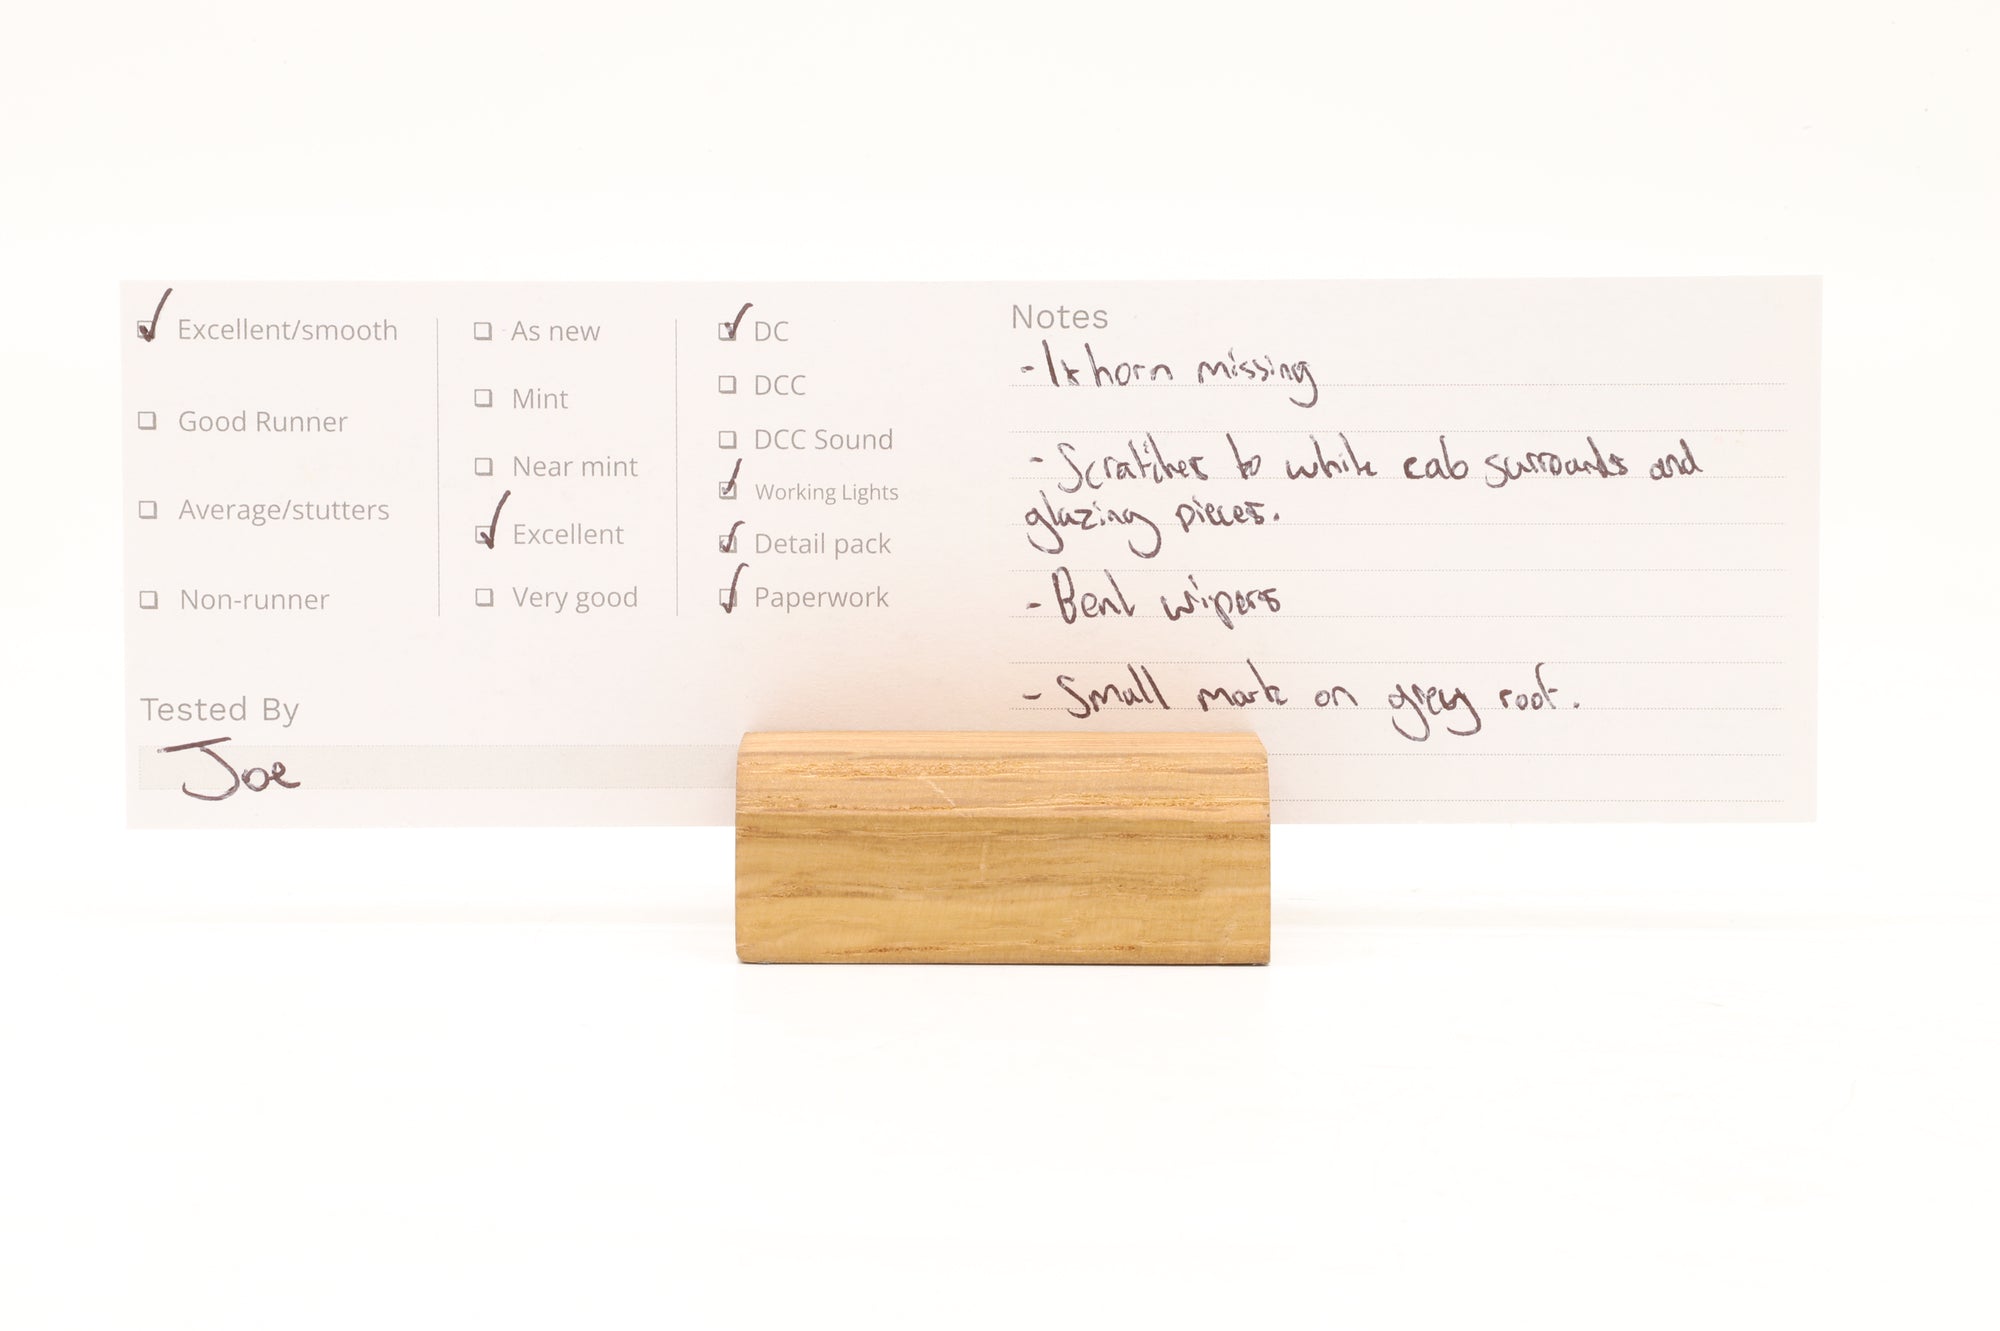 Excellent/smooth
Good Runner
Average/stutters
Non-runner
As new
Mint
Near mint
Excellent
Very good
DC
DCC
DCC Sound
Working Lights
Detail pack
Paperwork
Tested By
Joe
Notes
- 1x horn missing
- Scratches to white cab surrounds and
glazing pieces.
- Bent wipers
- Small mark on grey roof.